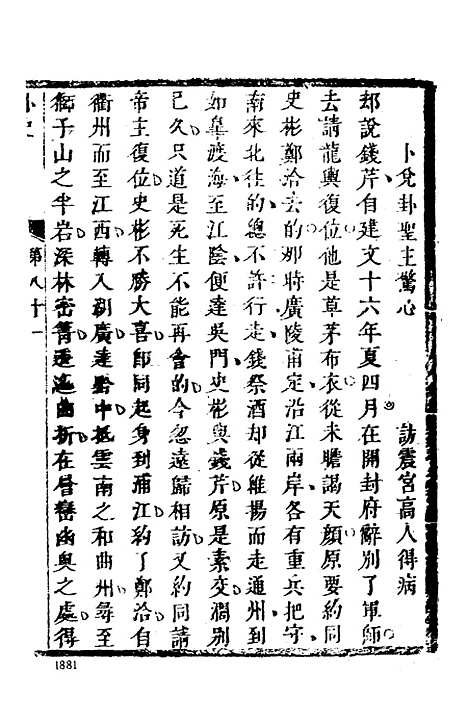 卜兌卦聖主驚心　訪震宮高人得病
却說錢芹自建文十六年夏四月在開封府辭別了軍師
去請龍輿復位他是草茅布衣從來瞻謁天顏原要約同
史彬鄭洽去的那時廣陵甫定沿江兩岸各有重兵把守
南來北往的總不許行走錢祭酒却從維揚而走通州到
如皐渡海至江陰便達吳門史彬與錢芹原是素交濶別
已久只道是死生不能再會的今忽遠歸相訪又約同請
帝主復位史彬不勝大喜卽同起身到浦江約了鄭洽自
衢州而至江西轉入湖廣達黔中抵雲南之和曲州尋至
獅子山之半岩深林密菁逶迤曲折在層巒幽奥之處得
第八十一
1881